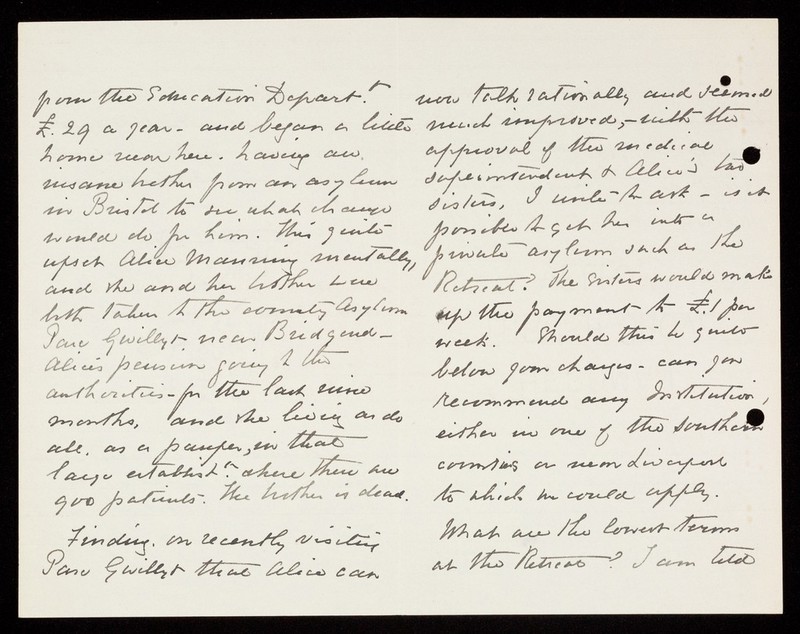 from the Education Depart.t
£.29 a year - and began a little
home near here. having an
insane brother from an asylum
in Bristol to see what change
would do for him. This quite
upset Alice Manning mentally,
and she and her brother were
both taken to the county Asylum
Parc Gwillyt near Bridgend -
Alice's pension going to the
authorities - for the last nine
months, and she living as do
all, as a pauper, in that
large establisht. where there are
900 patients. The brother is dead.
Finding, on recently visiting
Parc Gwillyt that Alice can
now talk rationally and seemed
much improved, - with the
approval of the medical
superintendent & Alice's two
sisters, I write to ask - is it
possible to get her into a
private asylum such as the
Retreat? The sisters would make
up the payment to £.1 per
week. Should this be quite
below your charges - can you
recommend any Institution,
either in one of the southern
counties or near Liverpool
to which we could apply.
What are the lowest terms
at the Retreat? I am told